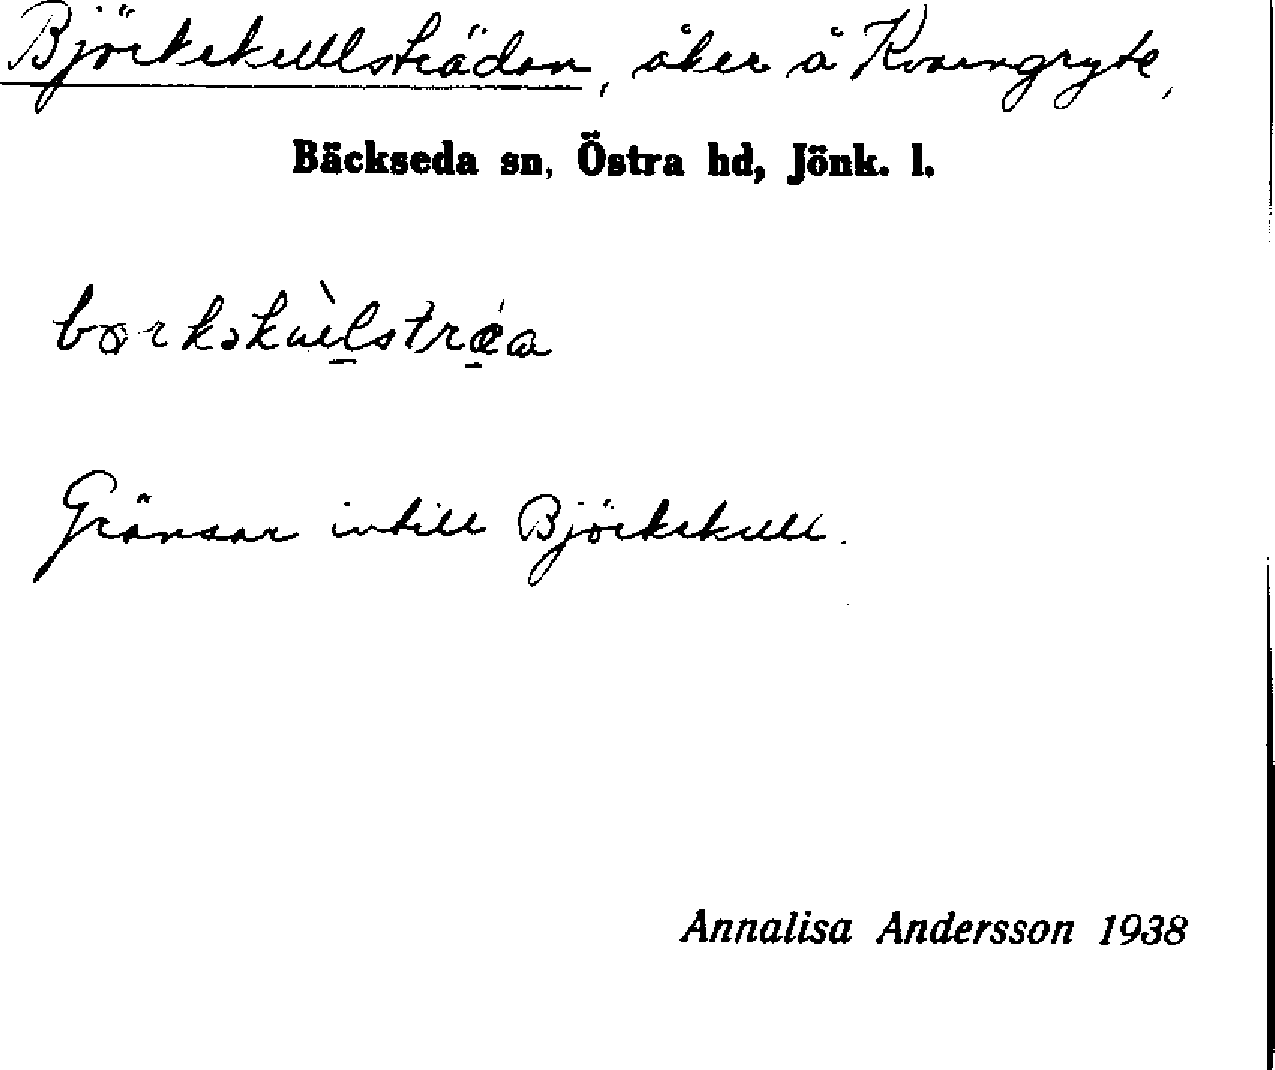 Björkekullsträdan, åker å Kvarngryte,
Bäckseda sn, Östra hd, Jönk. l.
Gränsar intill Björkekull.
Annalisa Andersson 1938